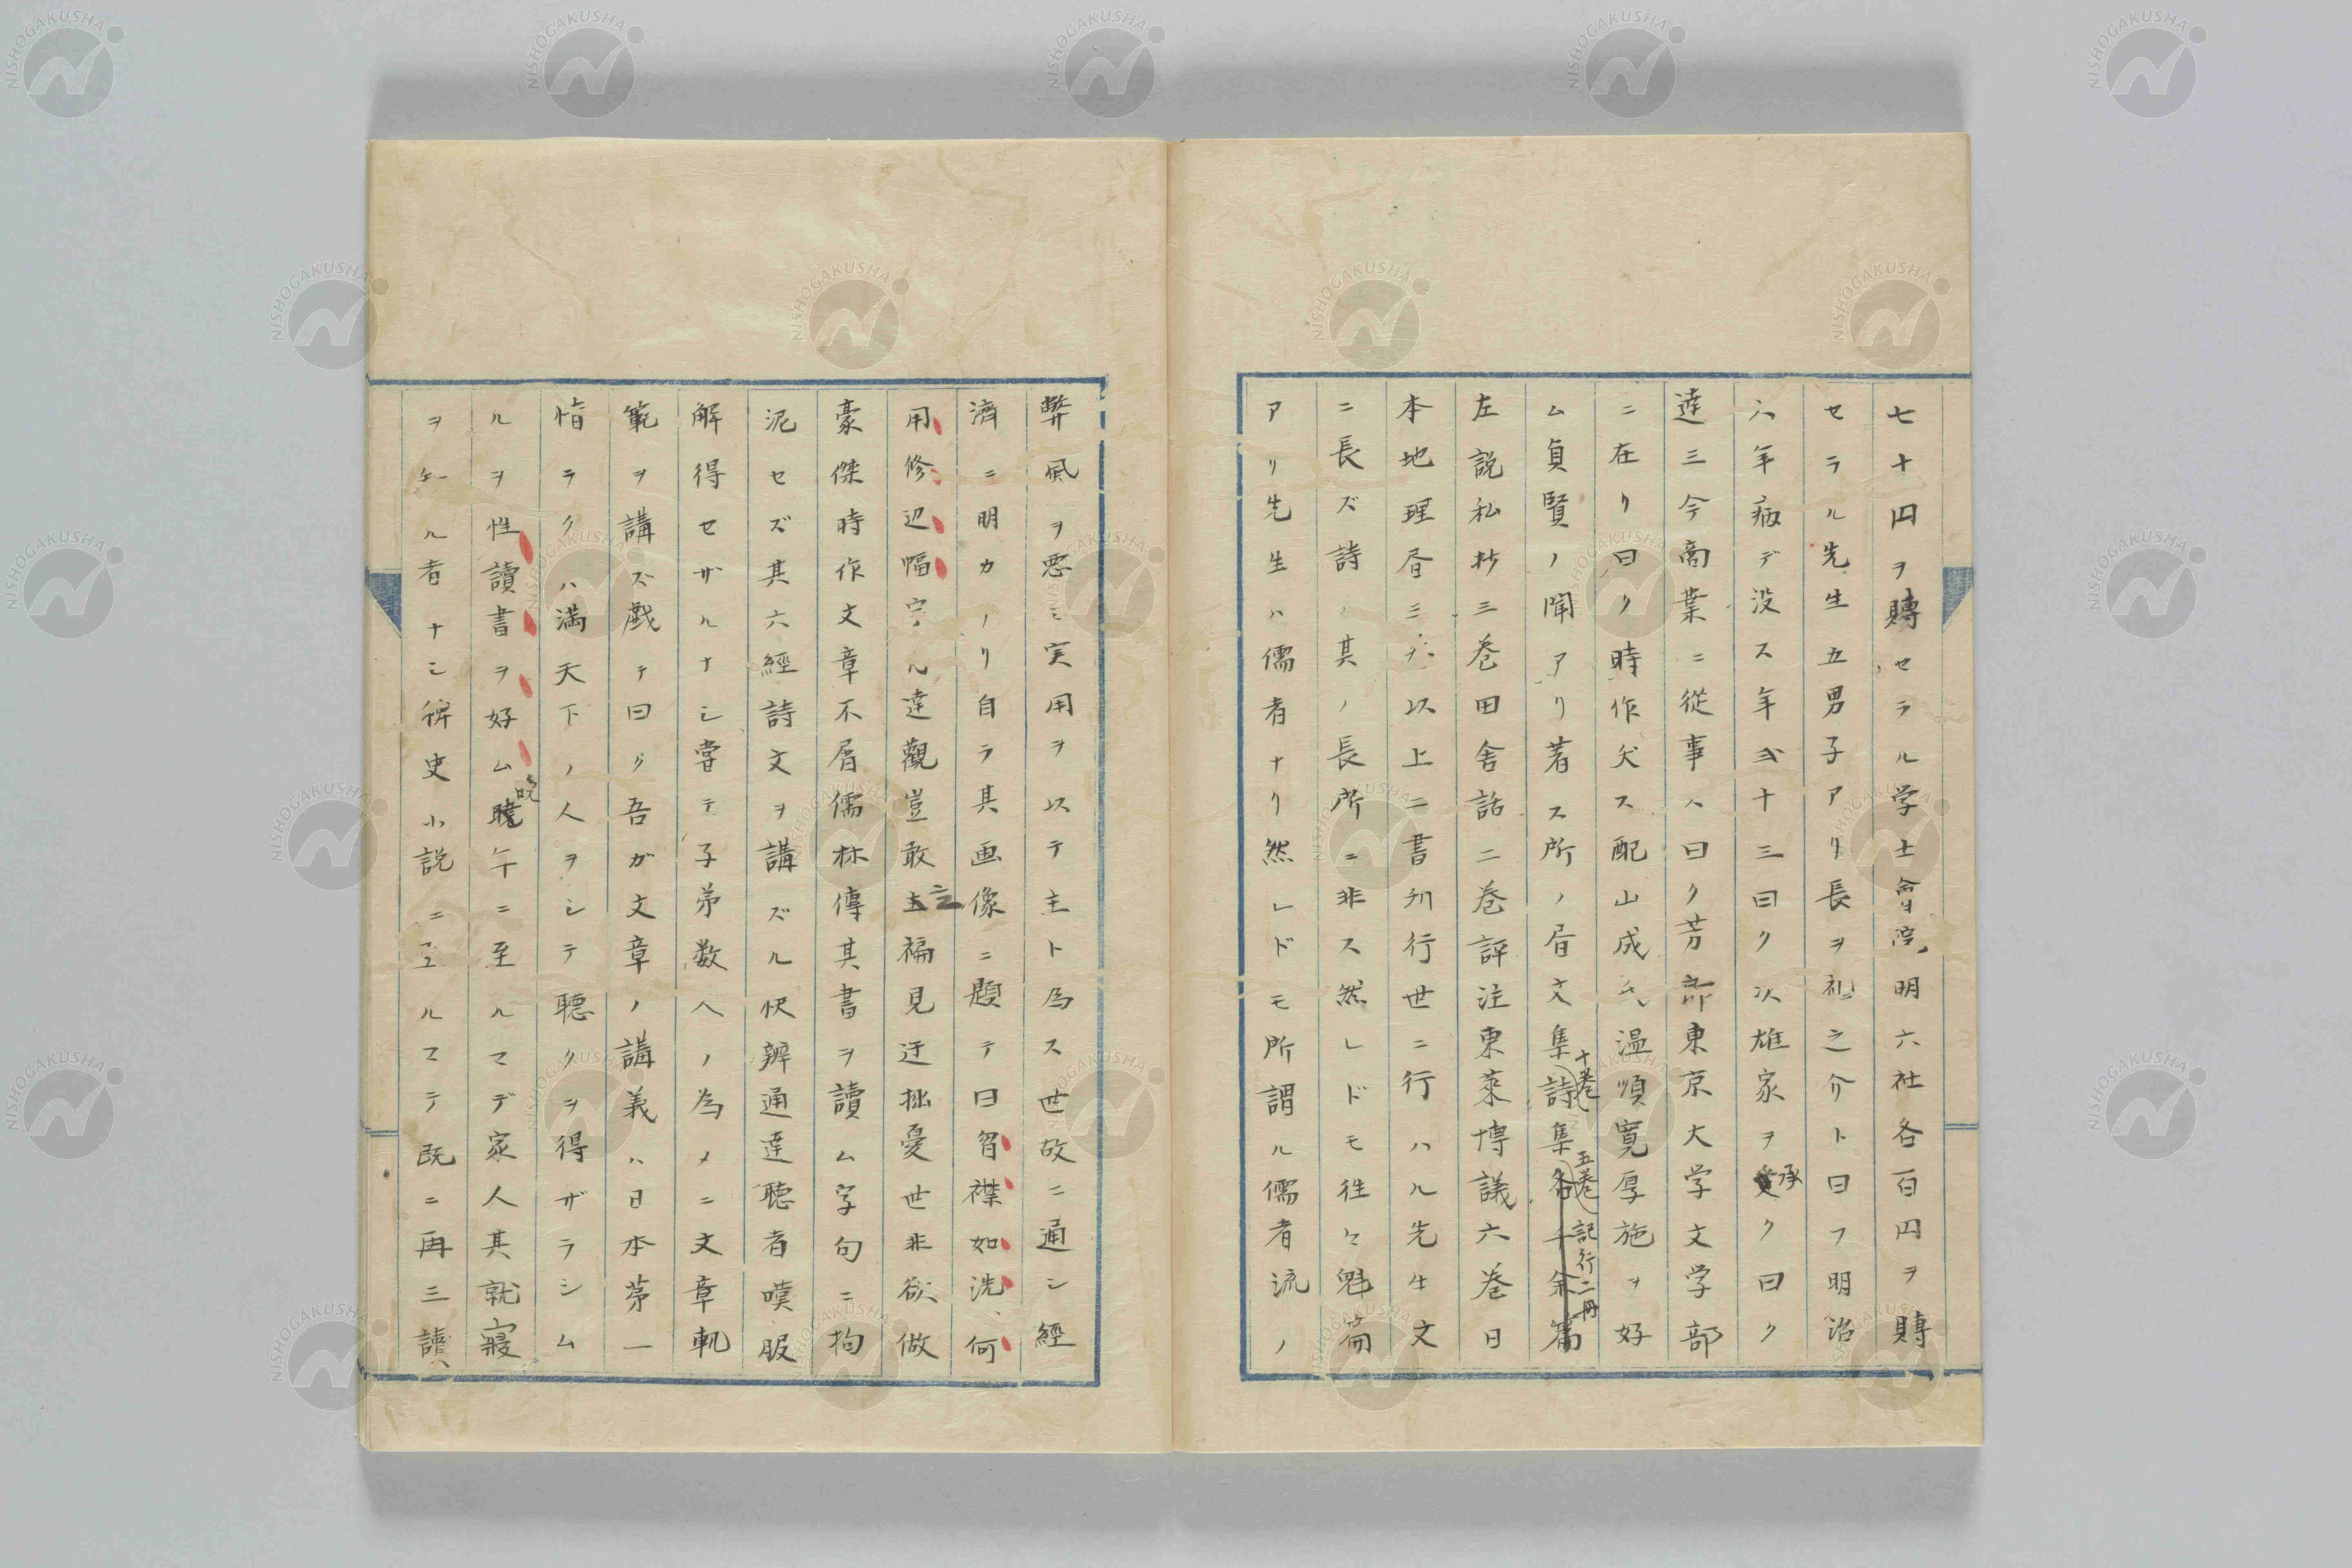 七十円ヲ賻セラル学士會院明六社各百円ヲ賻
セラル先生五男子アリ長ヲ礼之介ト曰フ明治
六年病デ没ス年弐十三曰ク次雄家ヲ承ク曰ク
達三今商業ニ從事ハ曰ク芳郎東京大学文学部
ニ在リ曰ク時作夭ス配山成氏温順寛厚施ヲ好
ム貞賢ノ聞アリ著ス所ノ者文集十巻詩集五巻記行二冊
左説私抄三巻田舎話二巻評注東萊博議六巻日
本地理昏三六以上ニ書刋行世ニ行ハル先生文
ニ長ズ詩ハ其ノ長所ニ非ス然レドモ徃々魁篇
アリ先生ハ儒者ナリ然レドモ所謂ル儒者流ノ
弊風ヲ悪ミ実用ヲ以テ主ト為ス世故ニ通シ經
濟ニ明カノリ自ラ其画像ニ題テ曰胷襟如洗何
用修辺幅宇ル達觀豈敢云褊見迂拙憂世非欲做
豪傑時作文章不屑儒林傳其書ヲ讀ム字句ニ拘
泥セズ其六經詩文ヲ講ズル快辨通達聴者嘆服
解得セザルナシ甞テ子弟数人ノ為メニ文章軌
範ヲ講ズ戯テ曰ク吾ガ文章ノ講義ハ日本第一
惜ラクハ満天下ノ人ヲシテ聴クヲ得ザラシム
ルヲ性讀書ヲ好ム晩午ニ至ルマデ家人其就寢
ヲ知ル者ナシ稗史小説ニ至ルマテ既ニ再三讀
NISHOGAKUSHA